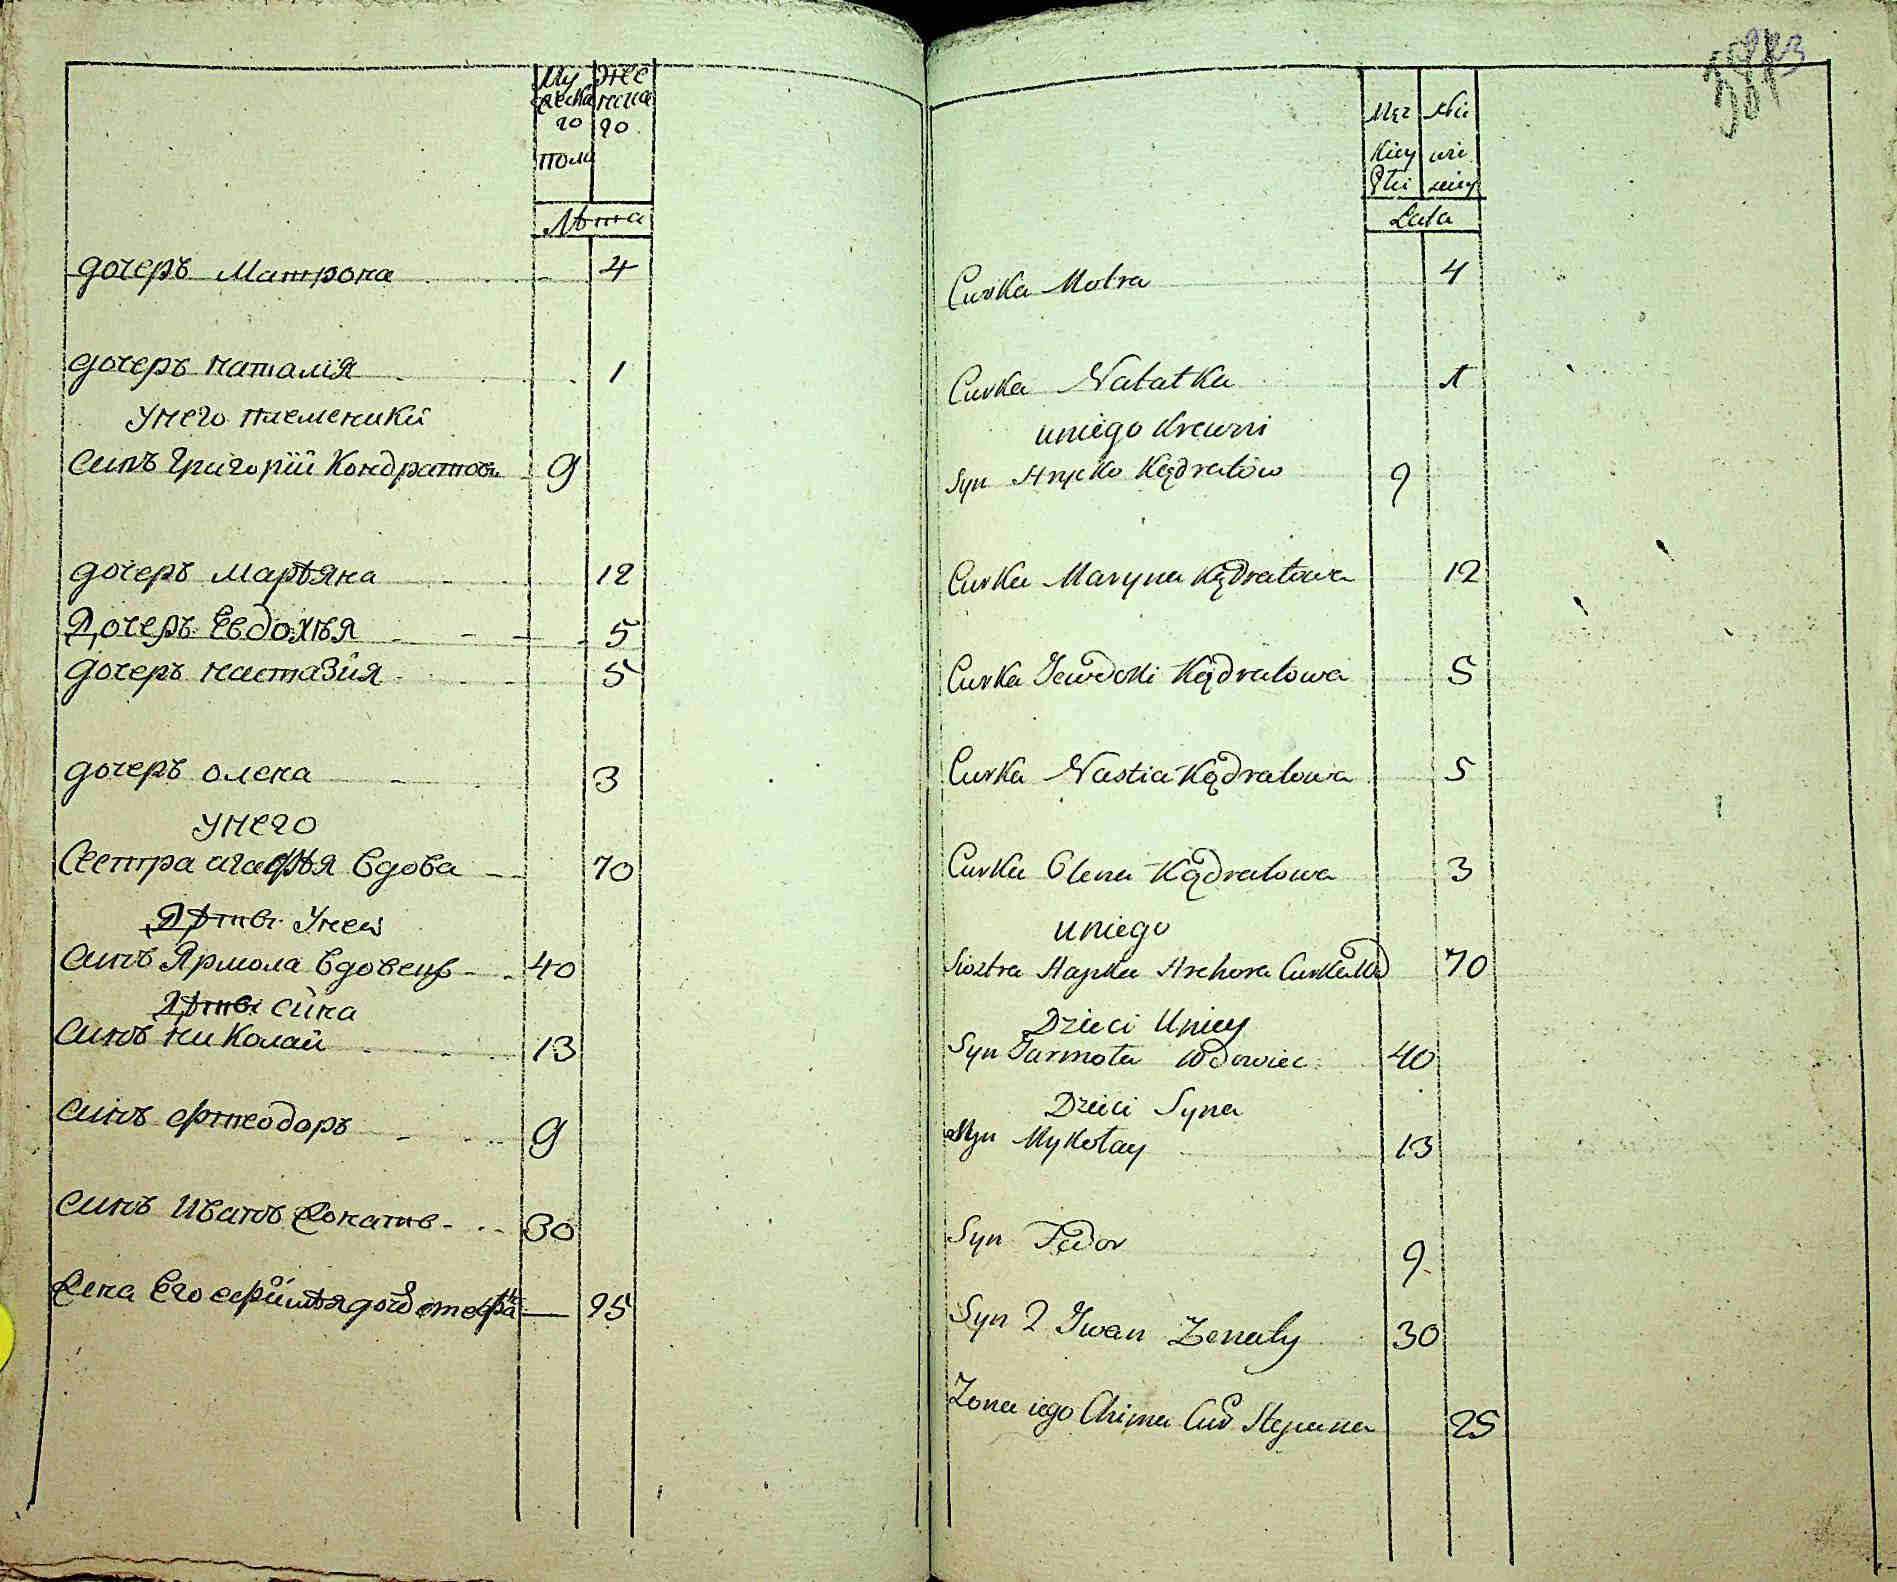 Му жеска го пола
Же нска го
Лѣта
дочеръ Матрона 4
дочеръ наталія 1
Унего племеники
синъ Григорій Кондратовъ 9
дочеръ Марѣяна 12
Дочеръ Евдохѣя 5
дочеръ настазія 5
дочеръ олена 3
Унего
Сестра агафѣя вдова 70
Дѣтѣ Уней
синъ Ярмола вдовецъ 40
Дѣтѣ сина
синъ николай 13
синъ фтеодоръ 9
синъ Иванъ Жонатъ 30
Жена Его 25
Męz kiey Płci
Nie wie sciey
Lata
Curka Motra 4
Curka Natałka 1
uniego Krewni
Syn Hryćko Kądratów 9
Curka Maryna Kądratowa 12
Curka Jewdoki Kądratowa 5
Curka Nastia Kądratowa 5
Curka Olena Kądratowa 3
uniego
Siostra Hapka Hrehora Curka 70
Dzieci Uniey
Syn Jarmoła Wdowiec 40
Dzieci Syna
Syn Mykołay 13
Syn Fedor 9
Syn 2 Iwan Żenaty 30
Żona iego Chima Cur Stepana 25